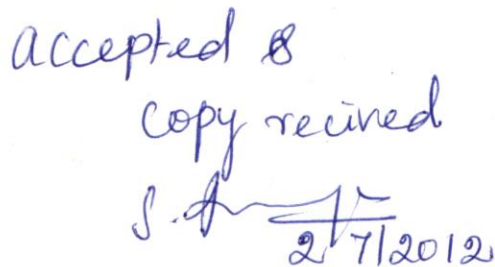 accepted &
copy recived
2/7/2012